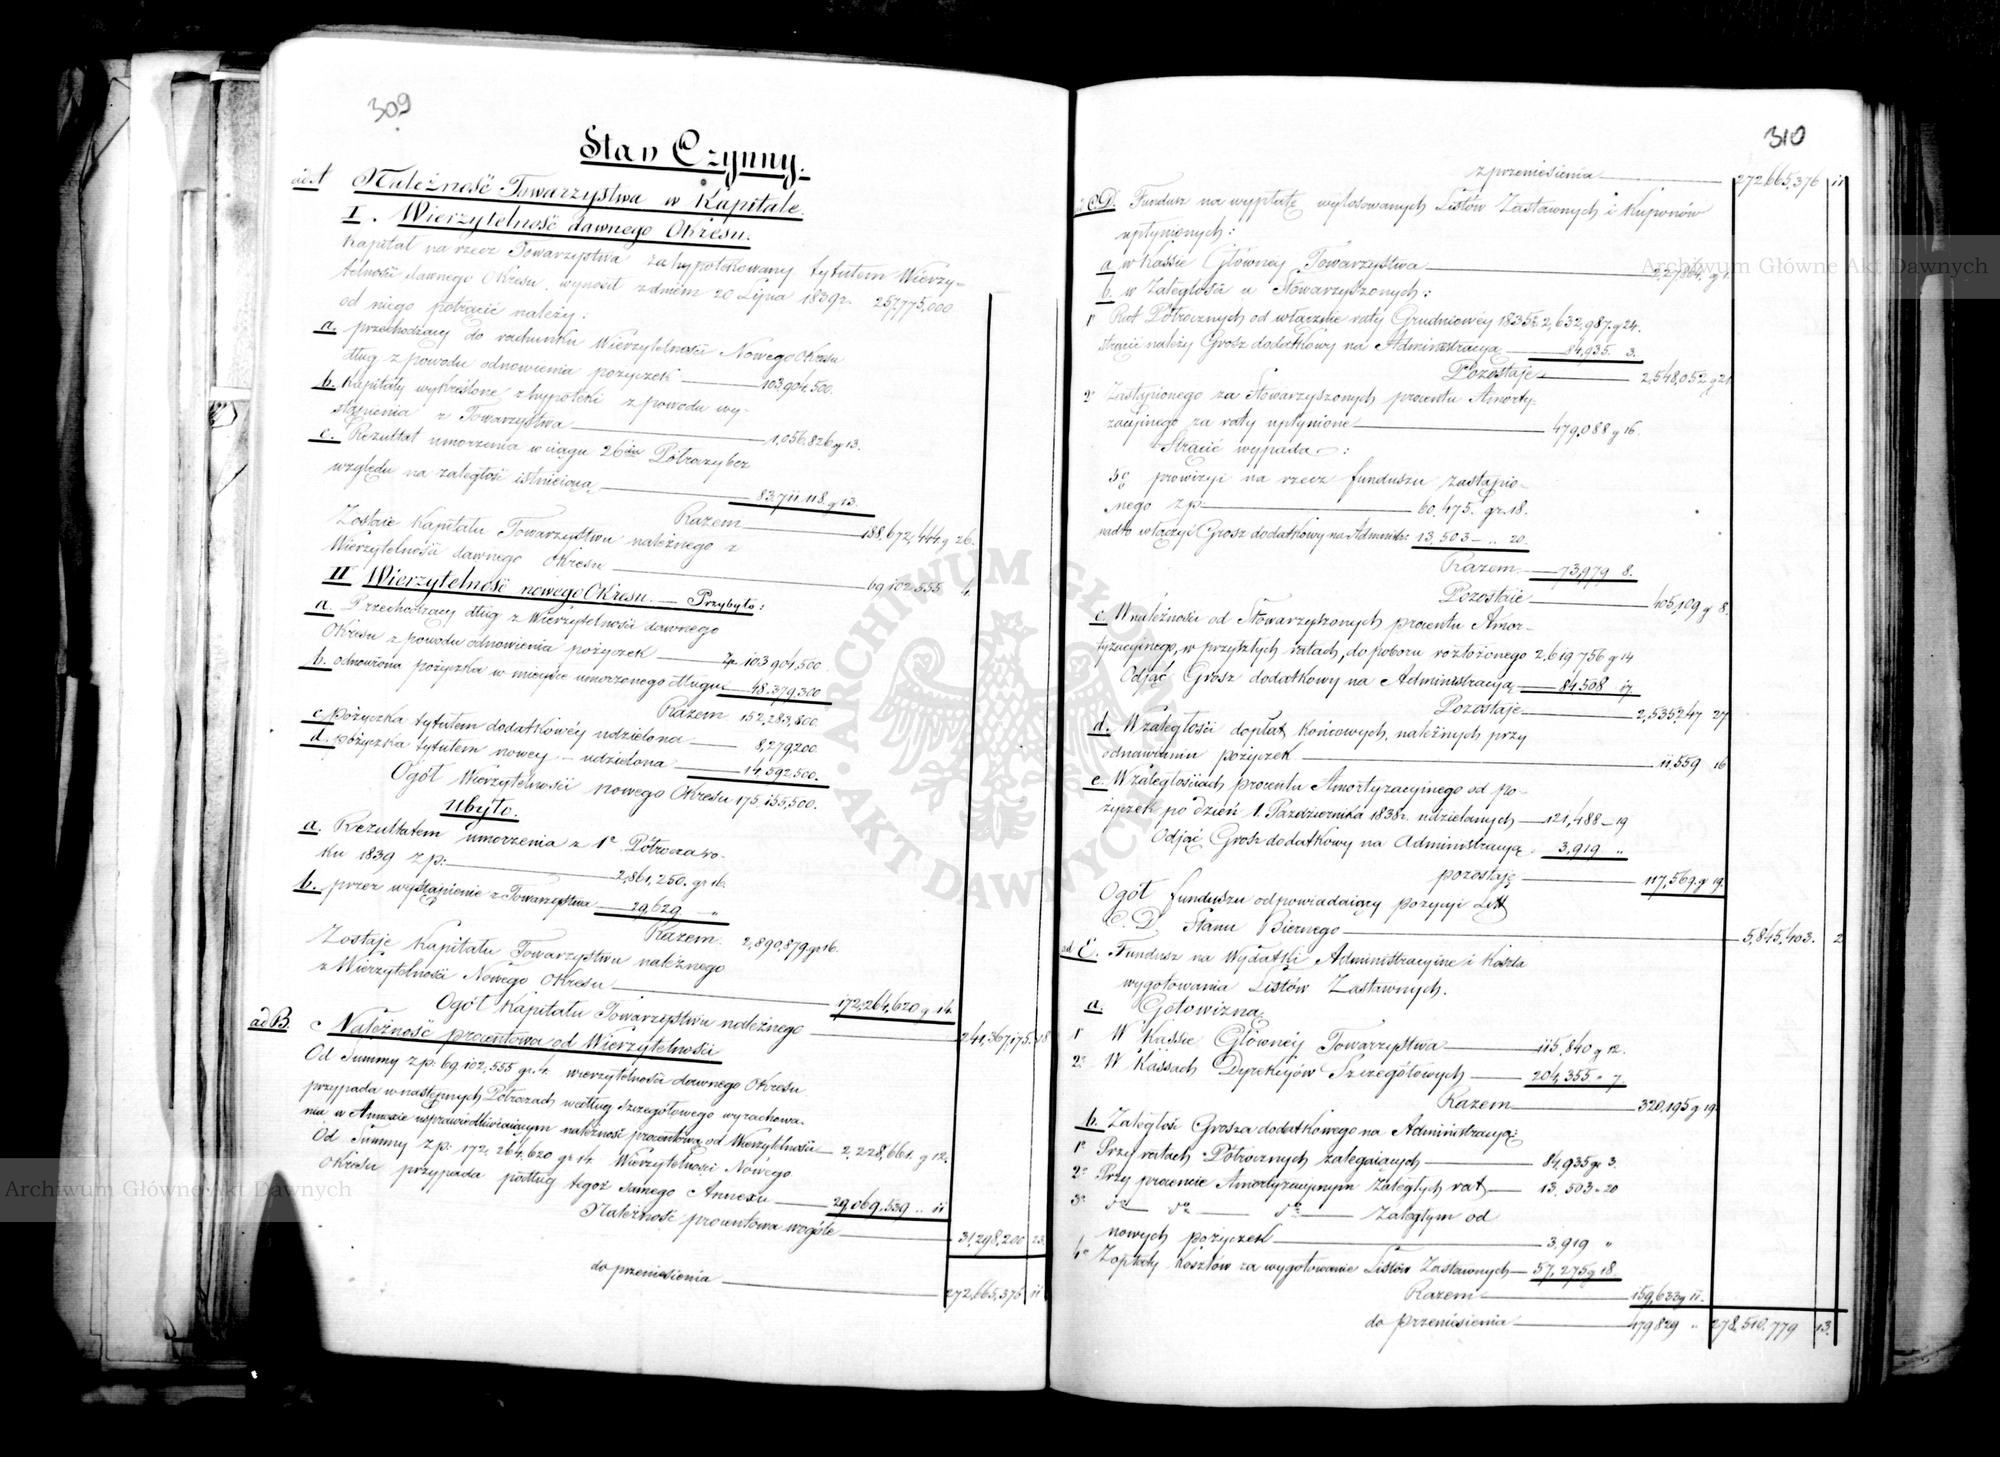 309
Stan Czynny.
ad A Należność Towarzystwa w Kapitale.
I. Wierzytelność dawnego Okresu.
Kapitał na rzecz Towarzystwa zahypotekowany tytułem Wierzy-
telności dawnego Okresu, wynosił z dniem 20 Lipca 1839r. 257,775,000
od niego potrącić należy:
a. przechodzący do rachunku Wierzytelności Nowego Okresu
dług z powodu odnowienia pożyczek 103,904,500.
b. Kapitały wykreślone z hypoteki z powodu wy-
stąpienia z Towarzystwa 1,056,826 g 13.
c. Rezultat umorzenia w ciągu 26ciu Półroczy bez
względu na zaległość istniejącą 83,711,118. g 13.
Razem 188,672,444 g 26.
Zostaie Kapitału Towarzystwu należnego z
Wierzytelności dawnego Okresu 69,102,555 4.
II Wierzytelność nowego Okresu. — Przybyło:
a. Przechodzący dług z Wierzytelności dawnego
Okresu z powodu odnowienia pożyczek zp. 103,904,500.
b. odnowiona pożyczka w miejsce umorzonego długu 48,379,300
Razem 152,283,800.
c. pożyczka tytułem dodatkowéy udzielona 8,279,200.
d. pożyczka tytułem nowey — udzielona 14,592,500.
Ogół Wierzytelności nowego Okresu 175,155,500.
Ubyło.
a. Rezultatem umorzenia z 1o Półrocza ro-
ku 1839 zp: 2,861,250. gr 16.
b. przez wystąpienie z Towarzystwa 29,629 "
Razem 2,890,879 gr 16.
Zostaje Kapitału Towarzystwu należnego
z Wierzytelności Nowego Okresu 172,264,620 g 14.
Ogół Kapitału Towarzystwu należnego 241,367,175. 18
ad B. Należność procentowa od Wierzytelności
Od Summy zp. 69,102,555 gr. 4. wierzytelności dawnego Okresu
przypada w następnych Półroczach według szczegółowego wyrachowa-
nia w Annexie usprawiedliwiającym należność procentową od Wierzytelności 2,228,661. g 12.
Od Summy zp: 172,264,620 gr 14. Wierzytelności Nowego
Okresu przypada podług tegoż samego Annexu 29,069,539 " 11
Należność procentowa wogóle 31,298,200 23.
do przeniesienia 272,665,376 11
310
z przeniesienia 272,665,376 11
C.D. Fundusz na wypłatę wylosowanych Listów Zastawnych i Kuponów
upłynionych:
a w Kassie Główney Towarzystwa 227,864. g 1
b. w Zaległości u Stowarzyszonych:
1o Rat Półrocznych od włącznie raty Grudniowéy 1835r. 2,632,987. g 24.
strącić należy Grosz dodatkowy na Administracyą 84,935. 3.
Pozostaje 2,548,052 g 21
2o Zastąpionego za Stowarzyszonych procentu Amorty-
zacyjnego za raty upłynione 479,088 g 16.
Strącić wypada:
prowizyi na rzecz funduszu zastąpio-
nego zp 60,475. gr. 18.
nadto włączyć Grosz dodatkowy na Administr. 13,503 — " 20.
Razem 73,979 8.
Pozostaie 405,109 g 8.
c. W należności od Stowarzyszonych procentu Amor-
tyzacyjnego, w przyszłych ratach, do poboru rozłożonego 2,619,756 g 14
Odjąć Grosz dodatkowy na Administracyą 84,508 17.
Pozostaje 2,535,247 27
d. W zaległości dopłat końcowych, należnych przy
odnawianiu pożyczek 11,559 16
e. W zaległościach procentu Amortyzacyjnego od po-
życzek po dzień 1. Października 1838r. udzielanych 121,488 — 19
Odjąć Grosz dodatkowy na Administracyą 3,919 "
pozostają 117,569. g 19.
Ogół funduszu odpowiadaiący pozycyi Litt
C. D. Stanu Biernego 5,845,403. 2
ad E. Fundusz na Wydatki Administracyine i Koszta
wygotowania Listów Zastawnych.
a. Gotowizna.
1o W Kassie Główney Towarzystwa 115,840 g 12.
2o W Kassach Dyrekcyów Szczegółowych 204,355 " 7
Razem 320,195 g 19
b. Zaległość Grosza dodatkowego na Administracyą:
1o Przy ratach Półrocznych zalegaiących 84,935 gr 3.
2o Przy procencie Amortyzacyjnym zaległych rat 13,503 " 20
3o do do do Zaległym od
nowych pożyczek 3,919 "
4o Z opłaty kosztów za wygotowanie Listów Zastawnych 57,275 g 18.
Razem 159,633 g 11.
do przeniesienia 479,829 " 278,510,779 13.
ARCHIWUM GŁÓWNE AKT DAWNYCH
Archiwum Główne Akt Dawnych
Archiwum Główne Akt Dawnych